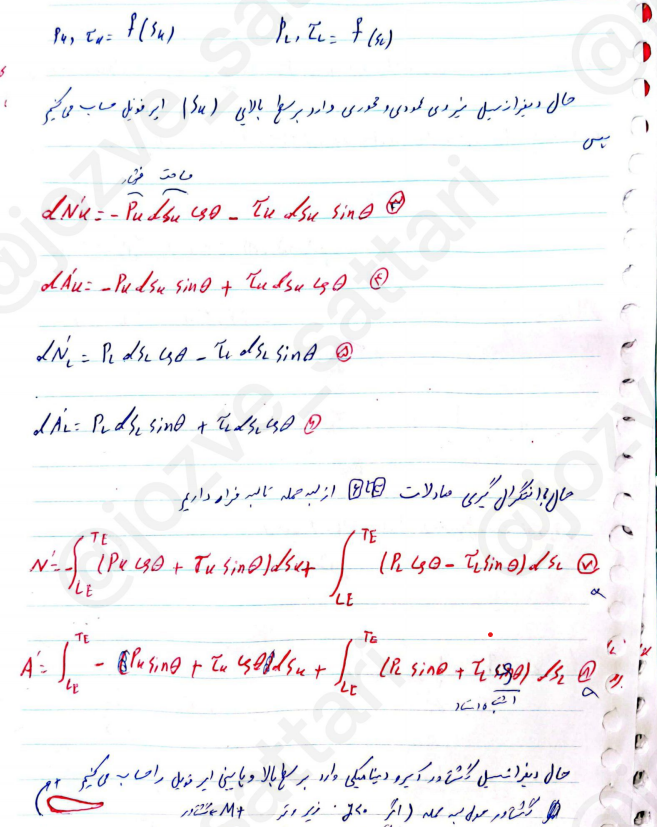 Pu, τu = f(Su)    PL, τL = f(SL)
حال دیفرانسیل نیروی عمودی و محوری وارد بر سطح بالایی (Su) ایرفویل حساب می‌کنیم
پس
مساحت فشار
dN'u = - Pu dSu cosθ - τu dSu sinθ ③
dA'u = - Pu dSu sinθ + τu dSu cosθ ④
dN'L = PL dSL cosθ - τL dSL sinθ ⑤
dA'L = PL dSL sinθ + τL dSL cosθ ⑥
حال با انتگرال گیری معادلات ③ تا ⑥ از لبه حمله تا لبه فرار داریم
N' = -∫_LE^TE (Pu cosθ + τu sinθ) dSu + ∫_LE^TE (PL cosθ - τL sinθ) dSL ⑦
A' = ∫_LE^TE -Pu sinθ + τu cosθ dSu + ∫_LE^TE (PL sinθ + τL cosθ) dSL ⑧
حال دیفرانسیل گشتاور آیرودینامیکی وارد بر سطح بالا و پایینی ایرفویل را حساب می‌کنیم
گشتاور حول لبه حمله (اگر
M+ گشتاور